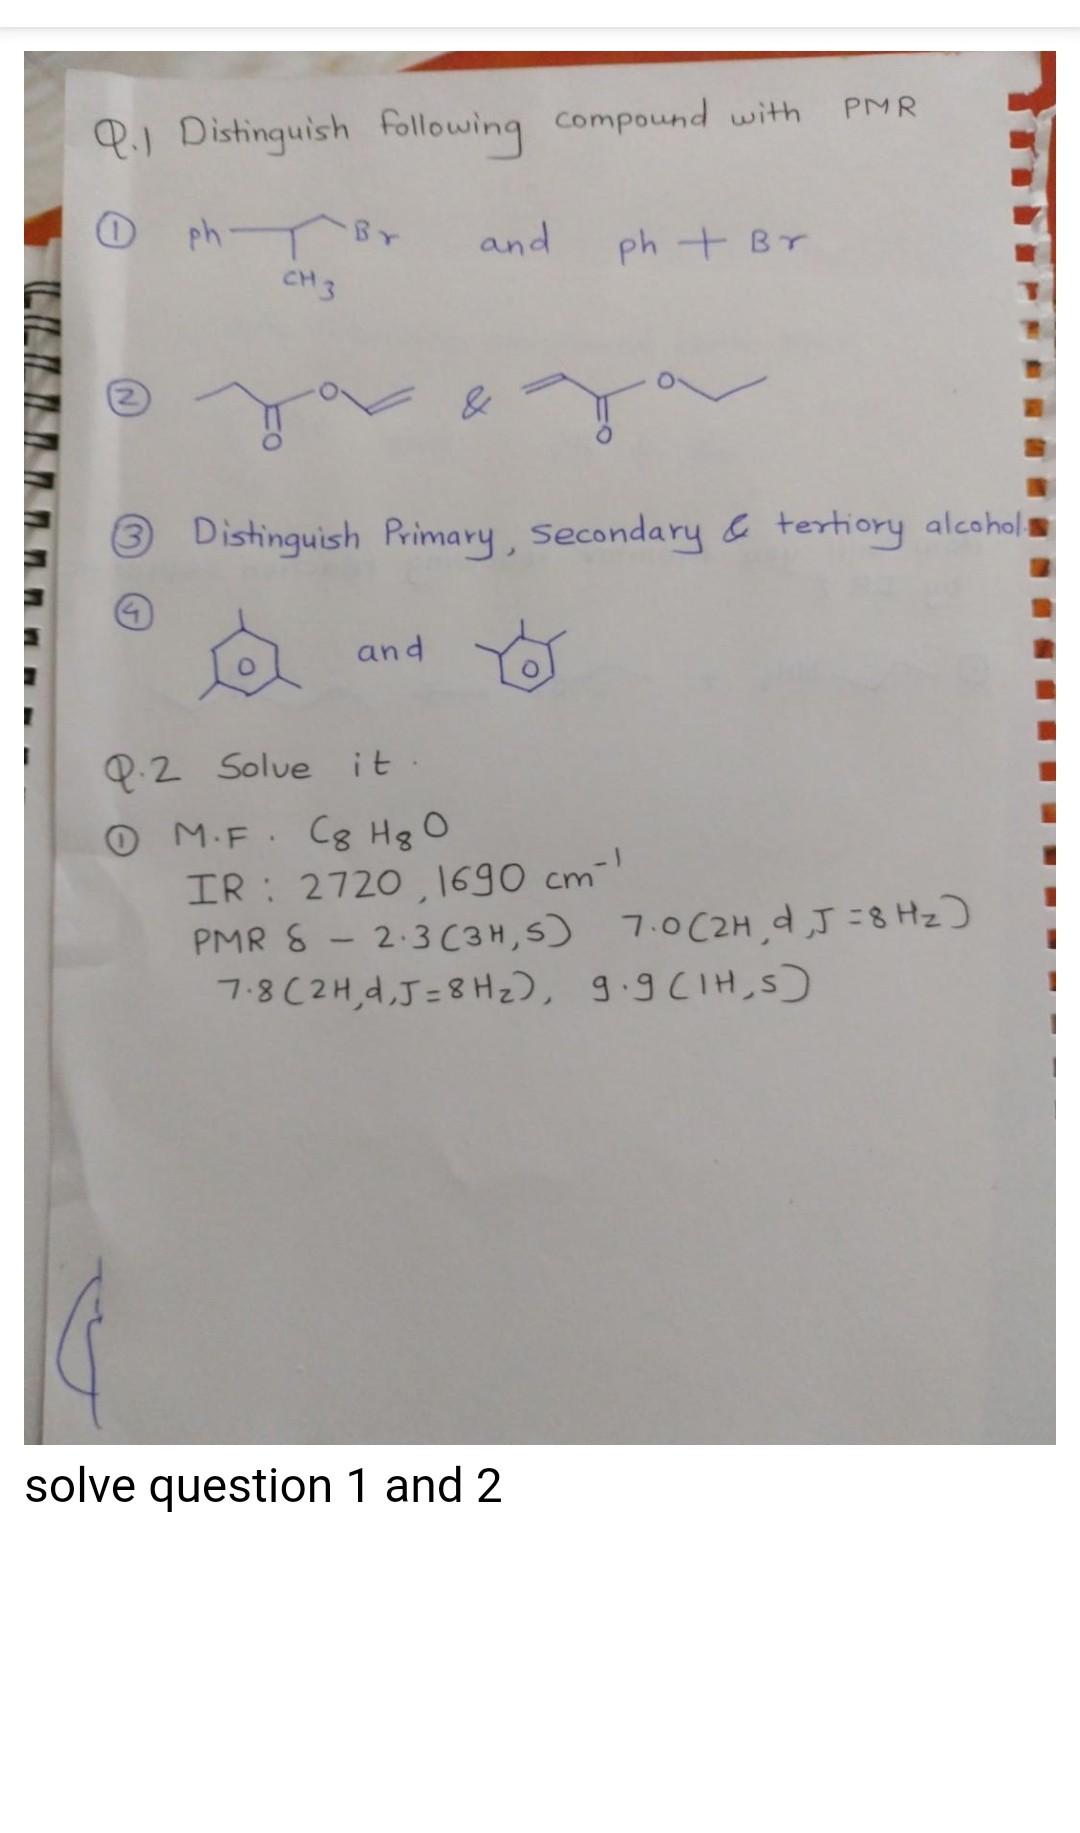 Q.1 Distinguish following compound with PMR
① ph Br and ph + Br
CH3
② O O & O O
③ Distinguish Primary, Secondary & tertiory alcohol.
④ and
Q.2 Solve it.
① M.F. C8 H8 O
IR : 2720, 1690 cm-1
PMR δ - 2.3 (3H, S) 7.0 (2H, d, J = 8 Hz)
7.8 (2H, d, J = 8 Hz), 9.9 (1H, S)
solve question 1 and 2